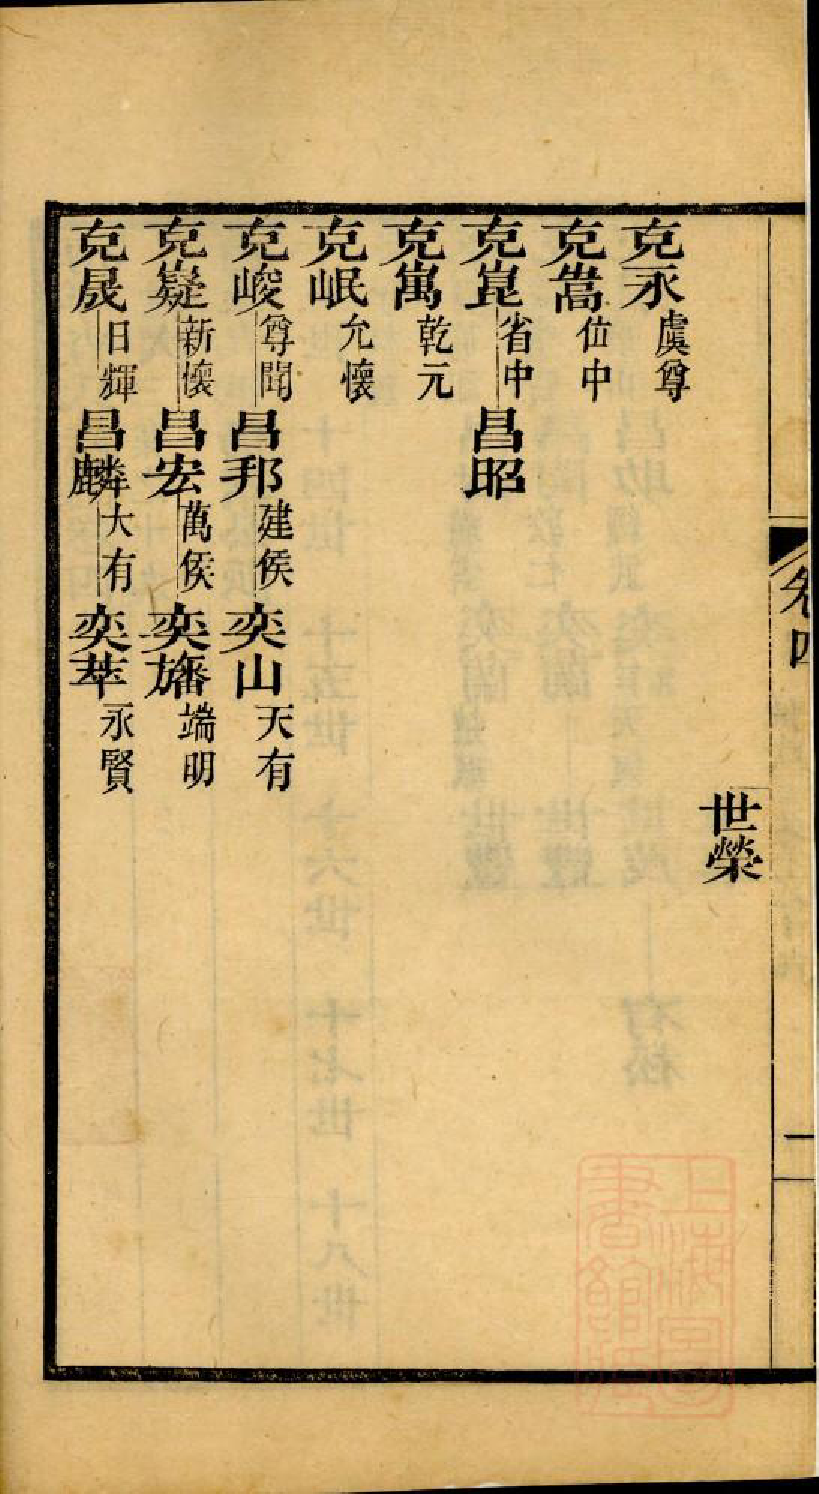 世榮
克永 虞尊
克嵩 位中
克崑 省中 昌昭
克寓 乾元
克岷 允懷
克峻 尊聞 昌邦 建侯 奕山 天有
克嶷 新懷 昌宏 萬侯 奕旛 端明
克晟 日輝 昌麟 大有 奕萃 永賢
卷四
二
上海圖書館藏